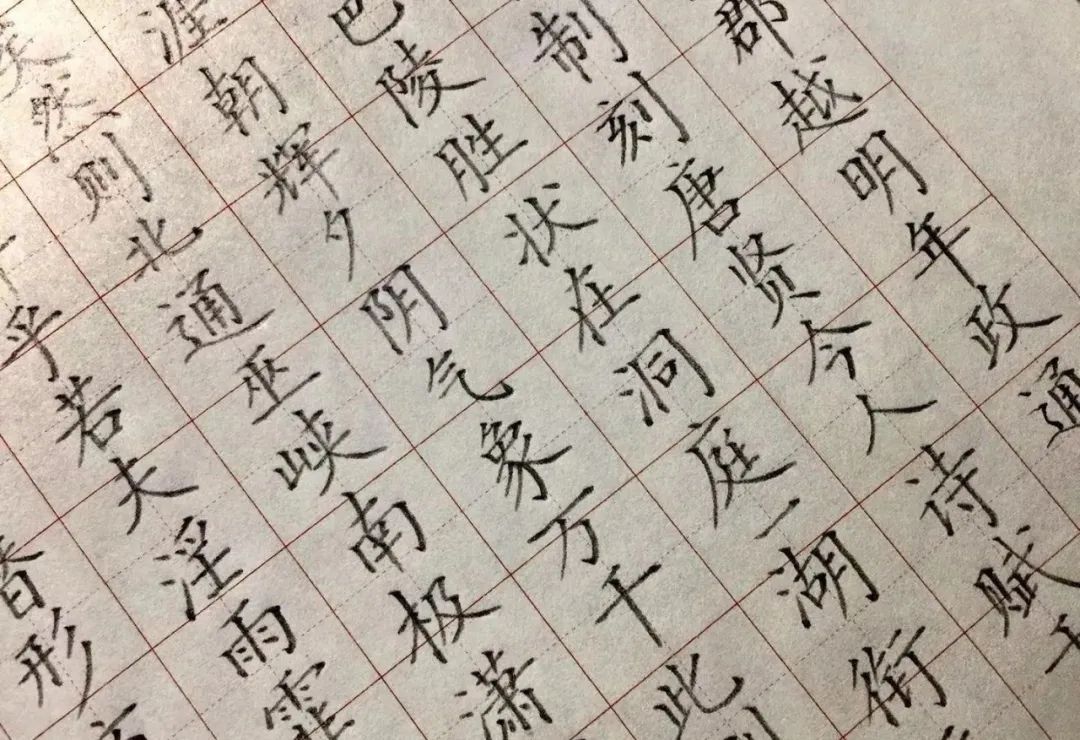 郡越明年政通
制刻唐贤今人诗赋于
巴陵胜状在洞庭一湖衔
涯朝辉夕阴气象万千此则
矣然则北通巫峡南极潇
乎若夫淫雨霏
形